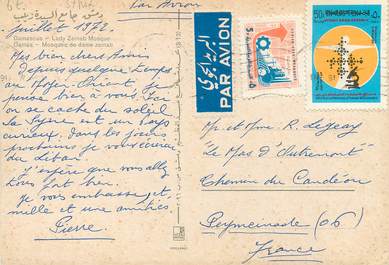 Par Avion
دمشق جامع السيدة زينب
Juillet 1973
Damascus - Lady Zeinab Mosque
Damas - Mosquée de dame zeinab
Mes bien chers Amis
Depuis quelque temps
au Moyen-Orient je
pense bien à vous. Ici
on se cache du soleil
La Syrie est un pays
curieux. Dans les jours
prochains je vous écrirai
du Liban.
J'espère que vous allez
tous fort bien.
Je vous embrasse, et
mille et une amitiés.
Pierre.
PAR AVION
بالبريد الجوي
50
Mr et Mme R. Legeay
"Le Mas d'Autremont"
Chemin du Candéou
Peymeinade (06)
France